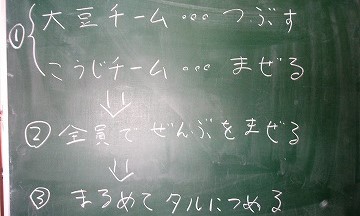 ① { 大豆チーム・・・つぶす
こうじチーム・・・まぜる
⇓
② 全員でぜんぶをまぜる
⇓
③ まるめてタルにつめる